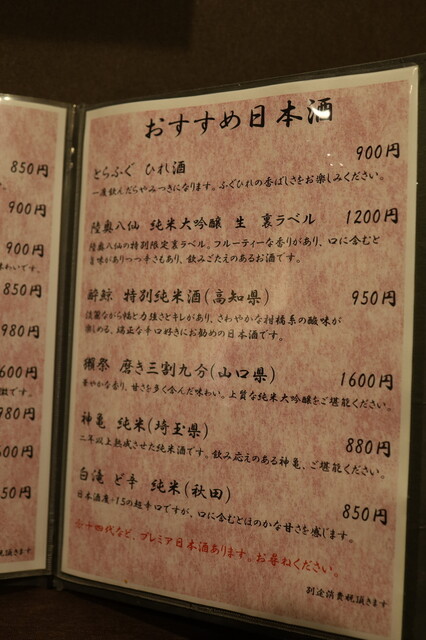 850円
900円
900円
わいです。
850円
980円
600円
980円
600円
50円
おすすめ日本酒
とらふぐ ひれ酒 900円
一度飲んだらやみつきになります。ふぐひれの香ばしさをお楽しみください。
陸奥八仙 純米大吟醸 生 裏ラベル 1200円
陸奥八仙の特別限定裏ラベル。フルーティーな香りがあり、口に含むと
旨味がありつつ辛さもあり、飲みごたえのあるお酒です。
酔鯨 特別純米酒(高知県) 950円
淡麗ながら幅と力強さとキレがあり、さわやかな柑橘系の酸味が
楽しめる、端正な辛口好きにお勧めの日本酒です。
獺祭 磨き三割九分(山口県) 1600円
華やかな香り、甘さを多く含んだ味わい。上質な純米大吟醸をご堪能ください。
神亀 純米(埼玉県) 880円
二年以上熟成させた純米酒です。飲み応えのある神亀、ご堪能ください。
白滝 ど辛 純米(秋田) 850円
日本酒度+15の超辛口ですが、口に含むとほのかな甘さを感じます。
☆十四代など、プレミア日本酒あります。お尋ねください。
別途消費税頂きます